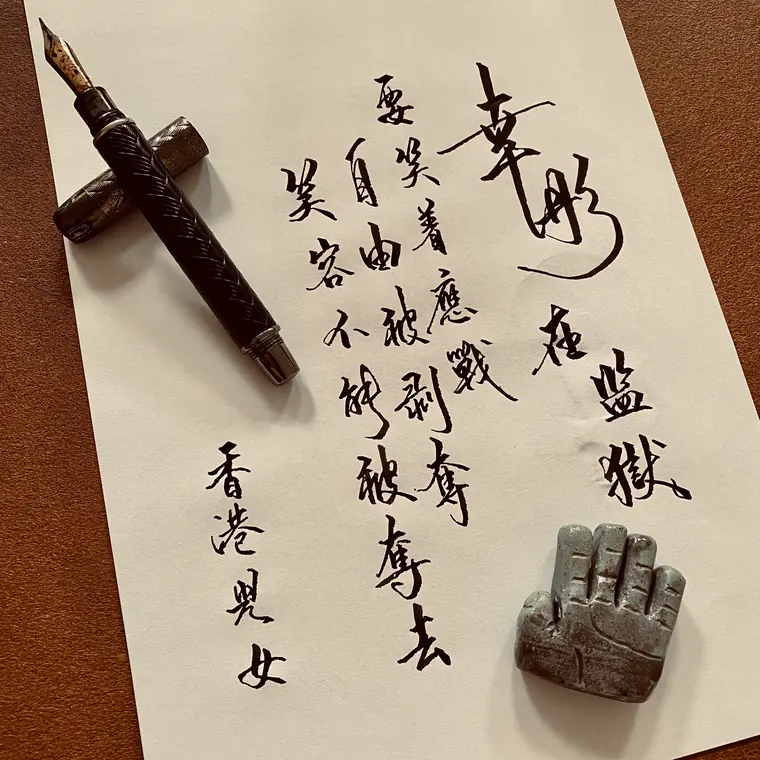 幸彤在監獄。
要笑着應戰
自由被剝奪
笑容不能被奪去
香港兒女